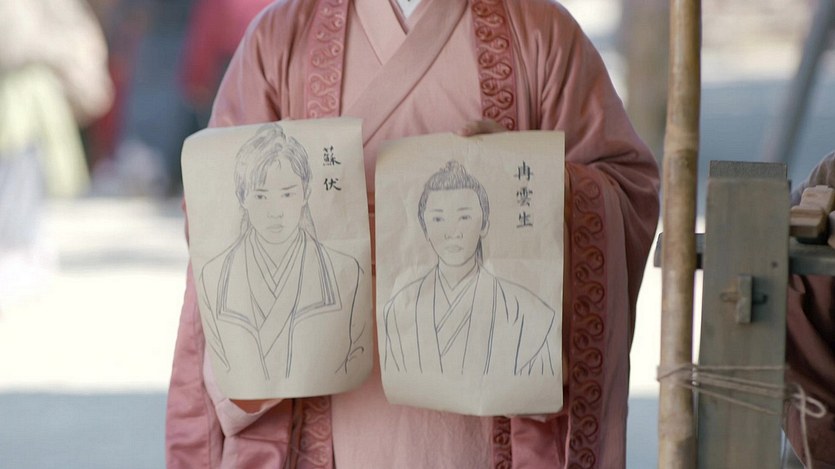 蘇伏
冉雲生